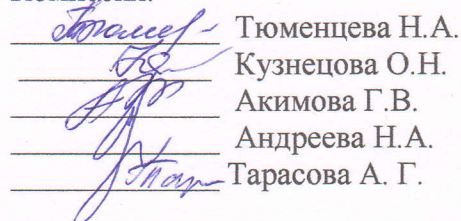 Тюменцева Н.А.
Кузнецова О.Н.
Акимова Г.В.
Андреева Н.А.
Тарасова А. Г.